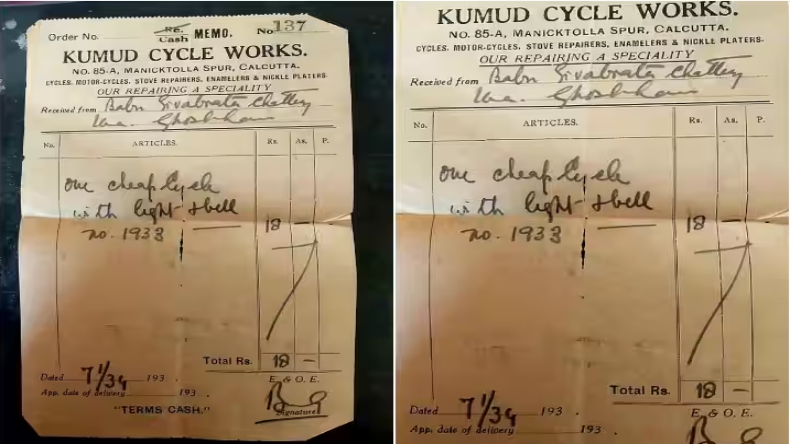 Order No.
Re.
Cash MEMO. No. 137
KUMUD CYCLE WORKS.
NO. 85-A, MANICKTOLLA SPUR, CALCUTTA.
CYCLES, MOTOR-CYCLES, STOVE REPAIRERS, ENAMELERS & NICKLE PLATERS.
OUR REPAIRING A SPECIALITY
Received from Babu Sivabrata
No. ARTICLES. Rs. As. P.
one cheap Cycle
with light & bell
no. 1933 — 18 —
Total Rs. 18 —
Dated 7/1/34 193 .
E. & O. E.
App. date of delivery 193 .
Signature
"TERMS CASH."
KUMUD CYCLE WORKS.
NO. 85-A, MANICKTOLLA SPUR, CALCUTTA.
CYCLES, MOTOR-CYCLES, STOVE REPAIRERS, ENAMELERS & NICKLE PLATERS.
OUR REPAIRING A SPECIALITY
Received from Babu Sivabrata
No. ARTICLES. Rs. As. P.
one cheap Cycle
with light & bell
no. 1933 — 18 —
Total Rs. 18 —
Dated 7/1/34 193 .
E. & O. E.
App. date of delivery 193 .